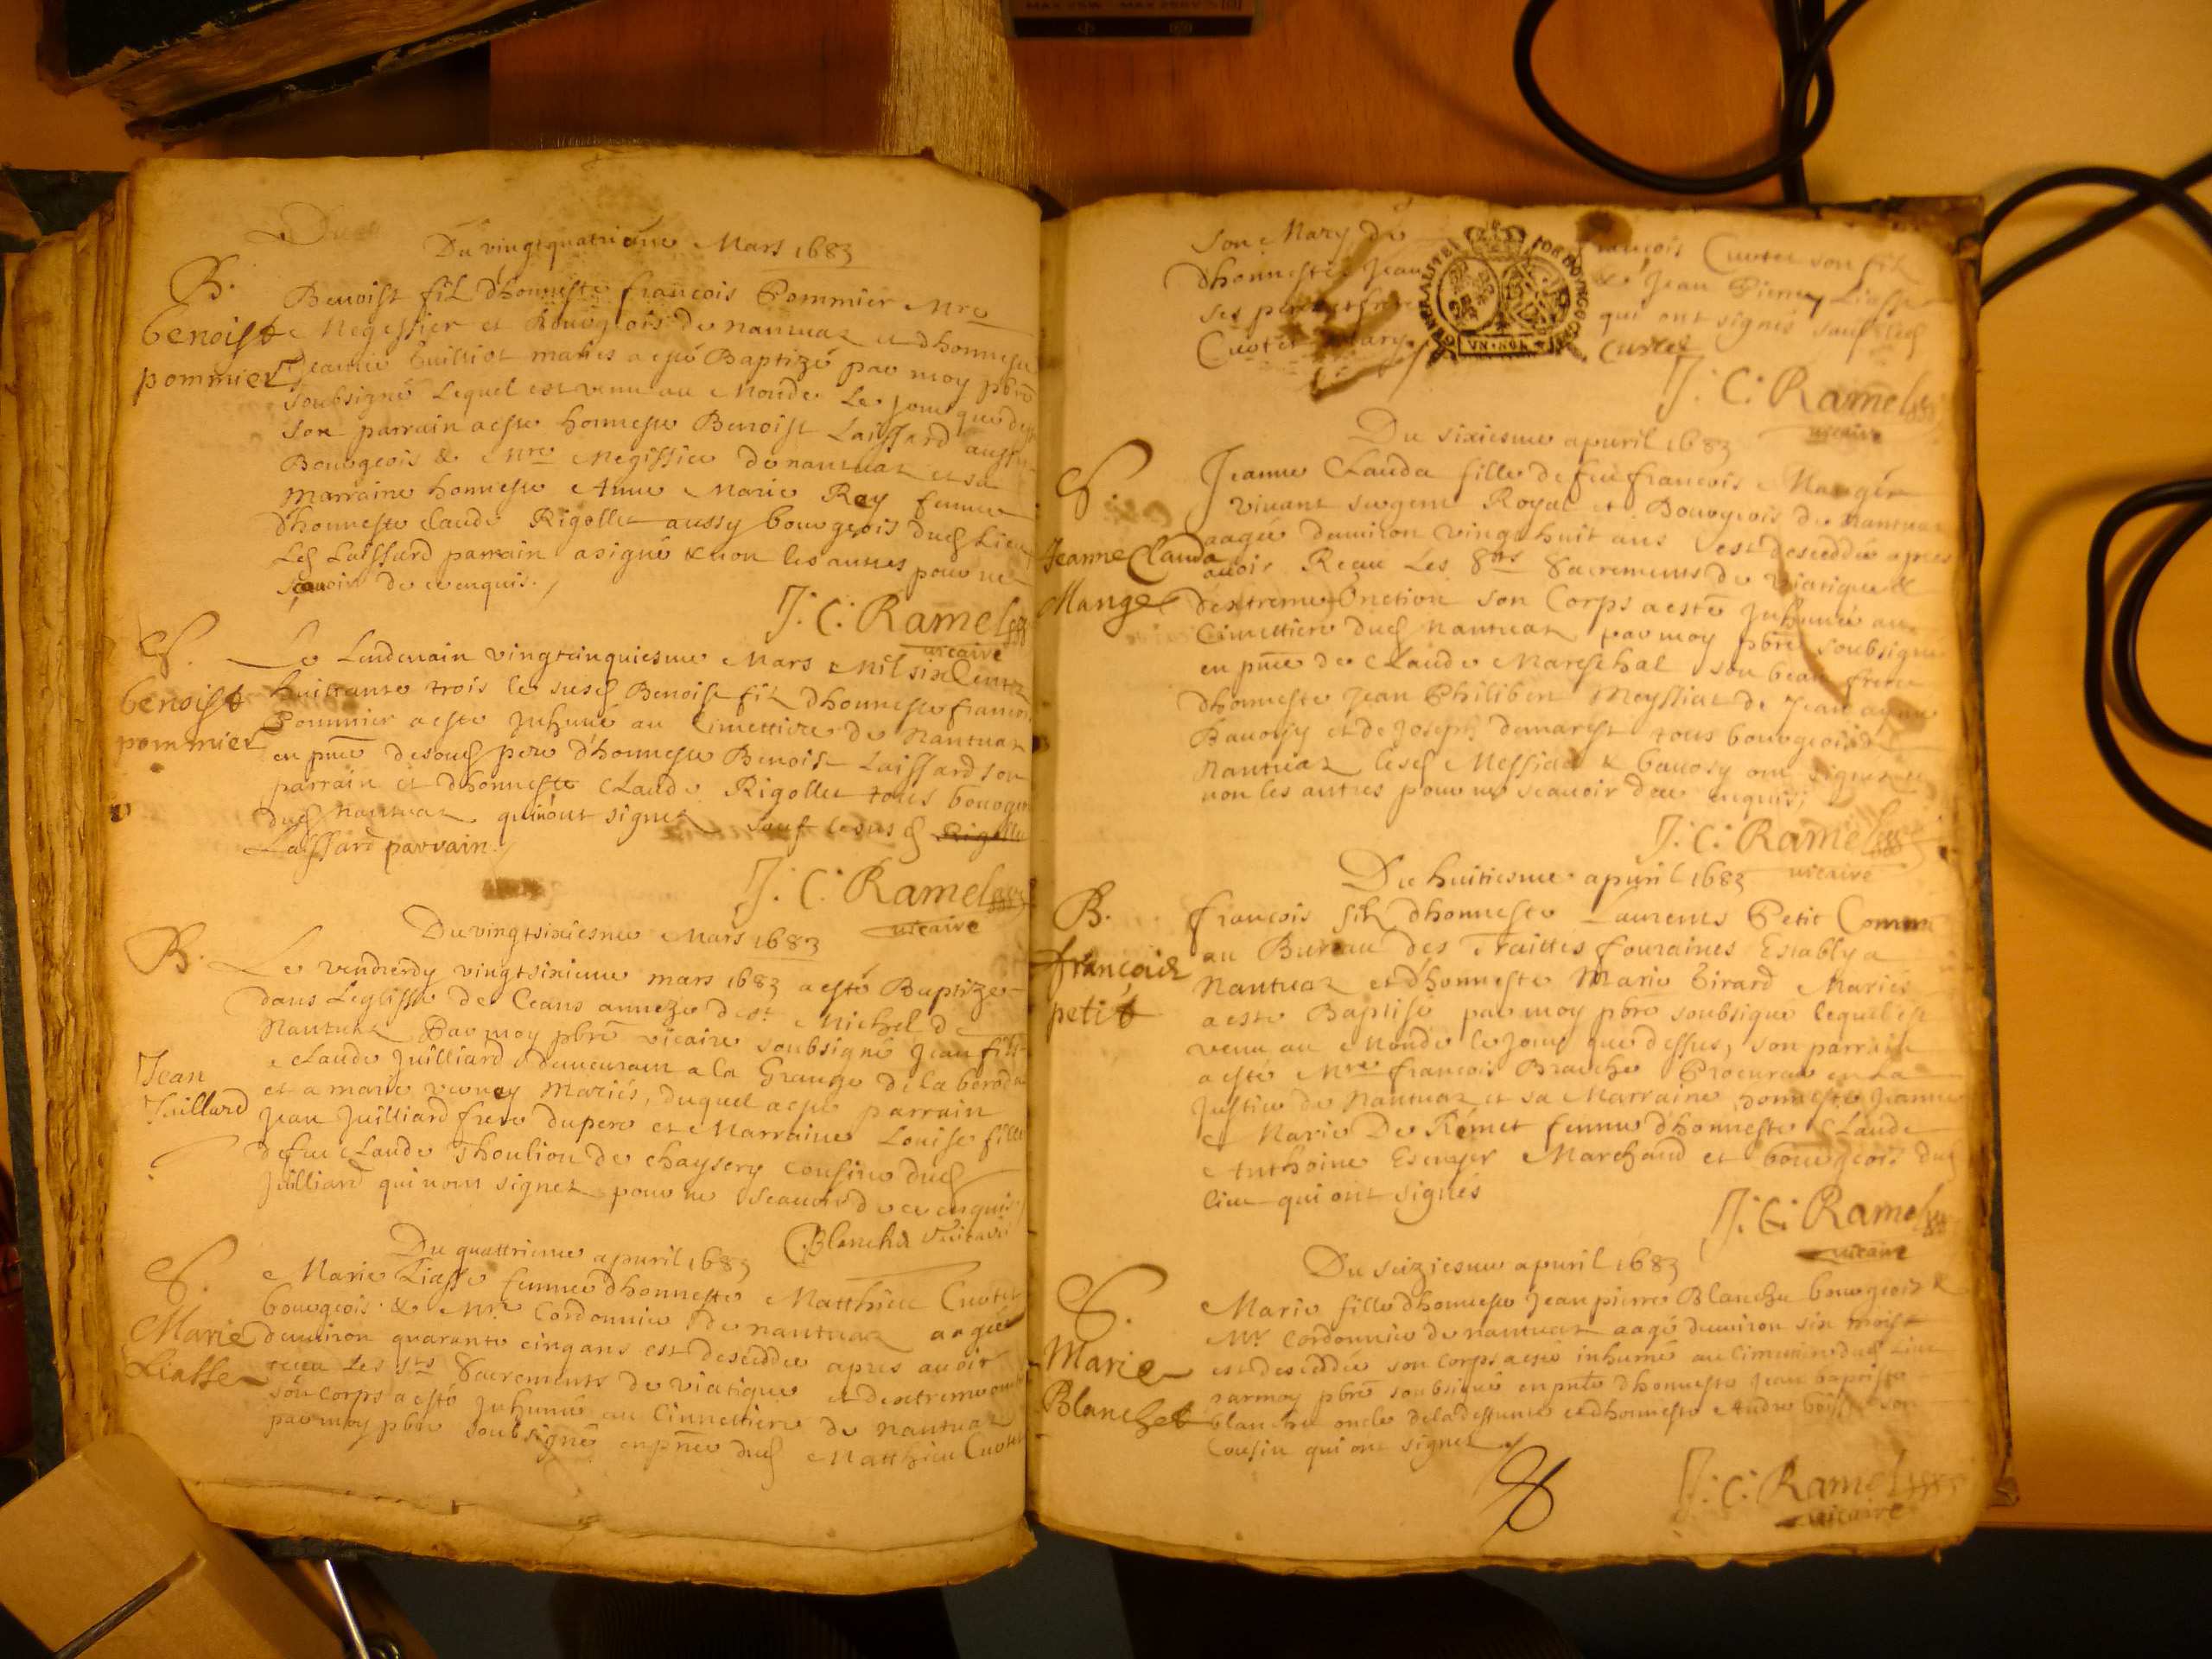 Du vingtquatrieme Mars 1683
B.
benoist
pommier
Benoist fil d'honneste françois Pommier Mre
Megessier et Bourgeois de nantuaz et d'honneste
Jeanne mariés a esté Baptizé par moy pbre
soubsigné Lequel est venu au Monde Le jour que dess
son parrain a este honneste Benoist Laissard aussy
Bourgeois & Mre Megissier de nantuaz et sa
Marraine honneste Anne Marie Rey femme
d'honneste Claude Rigollet aussy bourgeois dud Lieu
Led Laissard parrain a signé & non les autres pour ne
sçavoir de ce enquis.
J. C. Ramel
vicaire
S.
benoist
pommier
Le Lendemain vingtcinquiesme Mars Mil six Centz
huittante trois le susd Benoist fil d'honneste françois
Pommier a este Inhumé au Cimettiere de Nantuaz
en pnce desond pere d'honneste Benoist Laissard son
parrain et d'honneste Claude Rigollet tous bourgeois
dud Nantuaz qui n'ont signez sauf lesusd
Laissard parrain.
J. C. Ramel
vicaire
Du vingtsixiesme Mars 1683
B.
Jean
Juillard
Le vendredy vingtsixieme mars 1683 a esté Baptize
dans Leglisse de Ceans annexe de st Michel de
Nantuaz Par moy pbre vicaire soubsigné Jean fils
Claude Juilliard demeurant a la Grange de la
et a marie vernay Mariés, duquel a este parrain
Jean Juilliard frere du pere et Marraine Louise fille
de feu Claude Thoulion de chaysery cousine dud
Juilliard qui nont signez pour ne Sçeauoir de ce enquis
Blanchet Vicaire
Du quattrieme apuril 1683
S.
Marie
Liasse
Marie Liasse femme d'honneste Matthieu Cuotet
bourgeois & Mre Cordonnier de nantuaz aagée
denuiron quarante cinq ans est deseddée apres auoir
receu Les sts Sacrements de viatique et dextreme onction
son corps a esté Inhumé au Cimmettiere de nantuaz
par moy pbre soubsigné en pnce dud Matthieu Cuotet
son Mary de françois Cuotet son fil
d'honneste Jean & Jean Pierre Liasse
ses qui ont signés sauf led
Cuotet Mary. Cuotet
J. C. Ramel
vicaire
Du sixiesme apuril 1683
S.
Jeanne Clauda
Mange
Jeanne Clauda fille de feu françois Manger
viuant sergent Royal et Bourgeois de Nantuaz
aagée denuiron vingthuit ans est deseddée apres
auoir Receu Les Sts Sacrements de viatique &
dextreme Onction son Corps a esté Inhumé au
Cimettiere dud Nantuaz par moy pbre soubsigné
en pnce de Claude Mareschal son beau frere
d'honneste Jean Philibert Meyssiat de Jean
Bauosy et de Joseph demarest tous bourgeois de
Nantuaz lesd Messiat & bauosy ont signé et
non les autres pour ne sceauoir de ce enquis;
J. C. Ramel
vicaire
Du huitiesme apuril 1683
B.
françois
petit
françois filz d'honneste Laurents Petit Commi
au Bureau des Traittes fouraines Establya
Nantuaz et d'honneste Marie Girard Mariés
a este Baptisé par moy pbre soubsigné lequel est
venu au Monde le Jour que dessus, son parrain
a este Mre françois Brache Procureur en La
Justice de Nantuaz et sa Marraine honneste Jeanne
Marie De Rémet femme d'honneste Claude
Anthoine Marchand et bourgeois dud
lieu qui ont signés
J. C. Ramel
vicaire
Du seiziesme apuril 1683
S.
Marie
Blanchet
Marie fille d'honneste Jean pierre Blanchet bourgeois &
Mre Cordonnier de nantuaz aagé denuiron six mois
est deseddée son corps a este inhumé au Cimettiere dud Lieu
par moy pbre soubsigné en pnte d'honneste Jean baptiste
blanchet oncle de la deffunte et d'honneste Andre son
Cousin qui ont signez
J. C. Ramel
vicaire